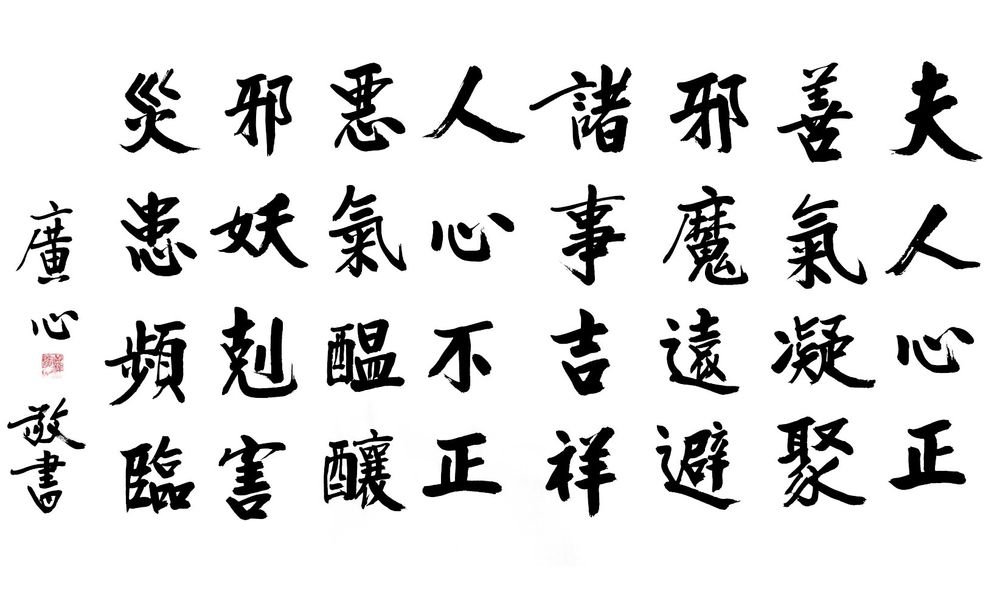 夫人心正
善氣凝聚
邪魔遠避
諸事吉祥
人心不正
惡氣醞釀
邪妖剋害
災患頻臨
廣心敬書